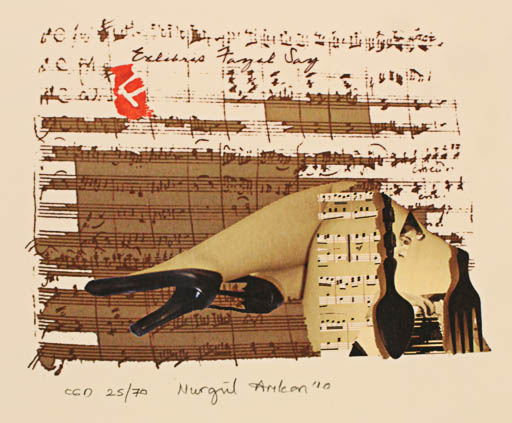 Exlibris Fazıl Say
CGD 25/70 Nurgül Arıkan '10